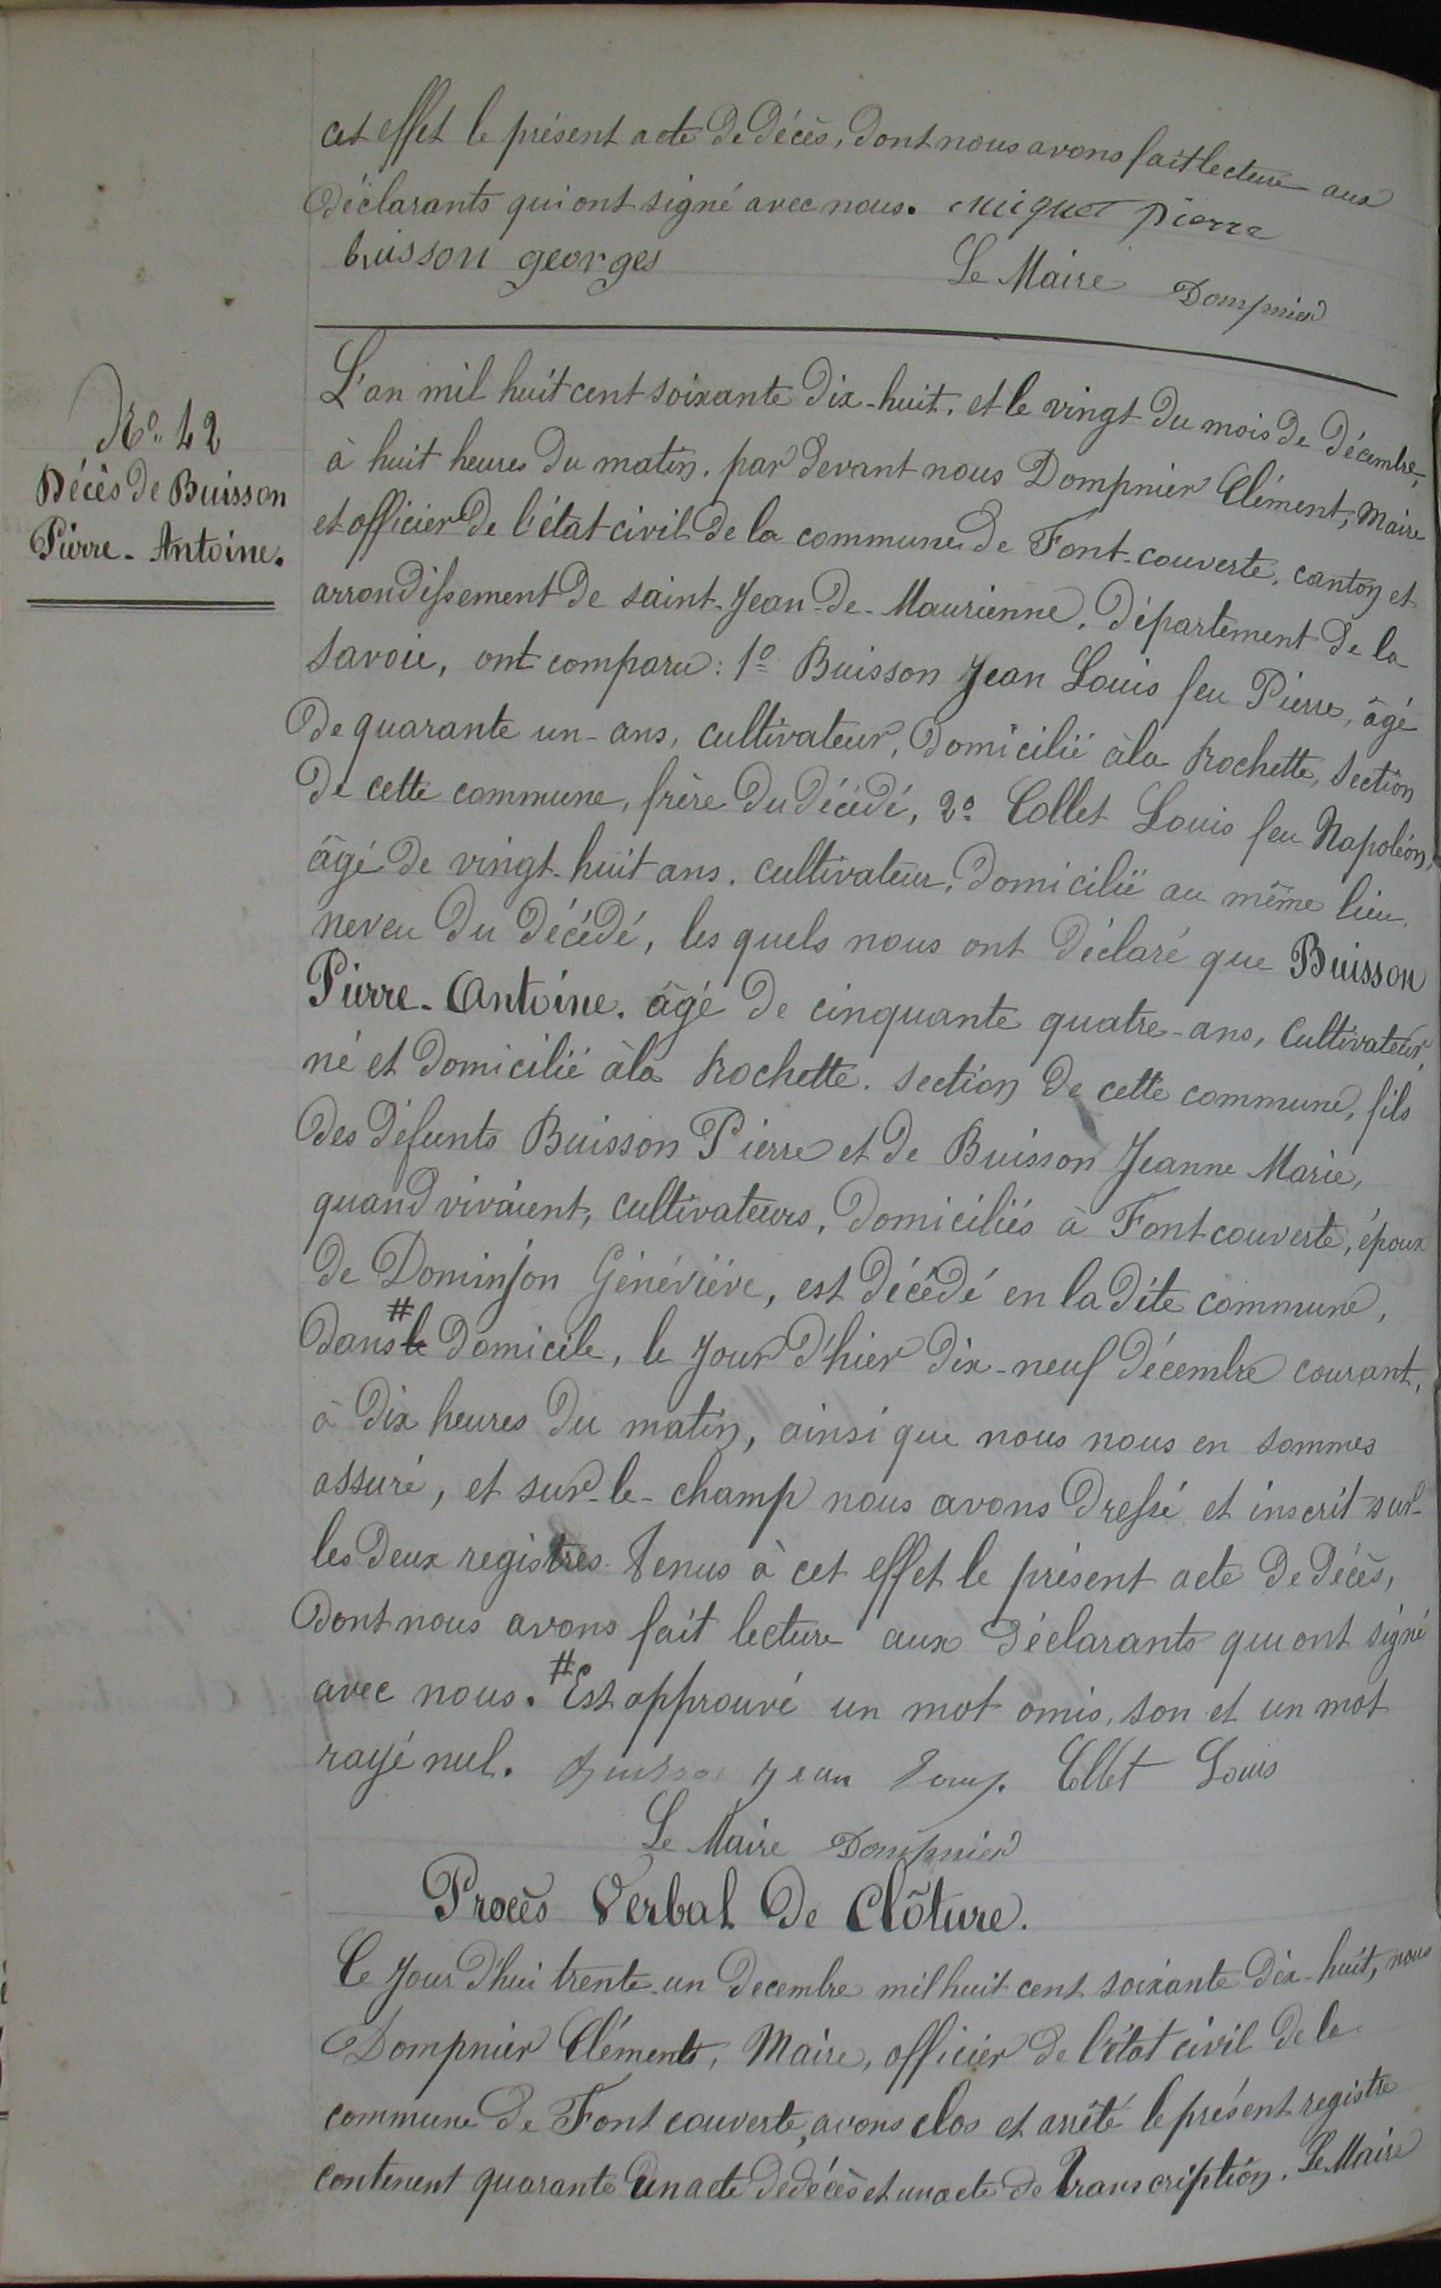 cet effet le présent acte de décès, dont nous avons fait lecture aux
déclarants qui ont signé avec nous. miquet pierre
buisson georges
Le Maire Dompnier
N° 42
Décès de Buisson
Pierre-Antoine.
L'an mil huit cent soixante dix-huit, et le vingt du mois de décembre,
à huit heures du matin. par devant nous Dompnier Clément, Maire
et officier de l'état civil de la commune de Font-couverte, canton et
arrondissement de saint-Jean-de-Maurienne, département de la
Savoie, ont comparu : 1° Buisson Jean Louis feu Pierre, âgé
de quarante un-ans, cultivateur, domicilié à la Rochette, section
de cette commune, frère du décédé, 2° Collet Louis feu Napoléon,
âgé de vingt-huit ans. cultivateur, domicilié au même lieu,
neveu du décédé, les quels nous ont déclaré que Buisson
Pierre-Antoine. âgé de cinquante quatre-ans, cultivateur,
né et domicilié à la Rochette. section de cette commune, fils
des défunts Buisson Pierre et de Buisson Jeanne Marie,
quand vivaient, cultivateurs, domiciliés à Fontcouverte, époux
de Dominjon Généviève, est décédé en la dite commune,
dans # le domicile, le jour d'hier dix-neuf décembre courant,
à dix heures du matin, ainsi que nous nous en sommes
assuré, et sur-le-champ nous avons dressé et inscrit sur
les deux registres tenus à cet effet le présent acte de décès,
dont nous avons fait lecture aux déclarants qui ont signé
avec nous. # Est approuvé un mot omis, son et un mot
rayé nul. Buisson jean Louis Collet Louis
Le Maire Dompnier
Procès Verbal de Clôture.
Ce jour d'hui trente-un decembre mil huit cent soixante dix-huit, nous
Dompnier Clément, Maire, officier de l'état civil de la
commune de Font couverte, avons clos et arrêté le présent registre
contenent quarante un acte de décès et un acte de transcription. Le Maire